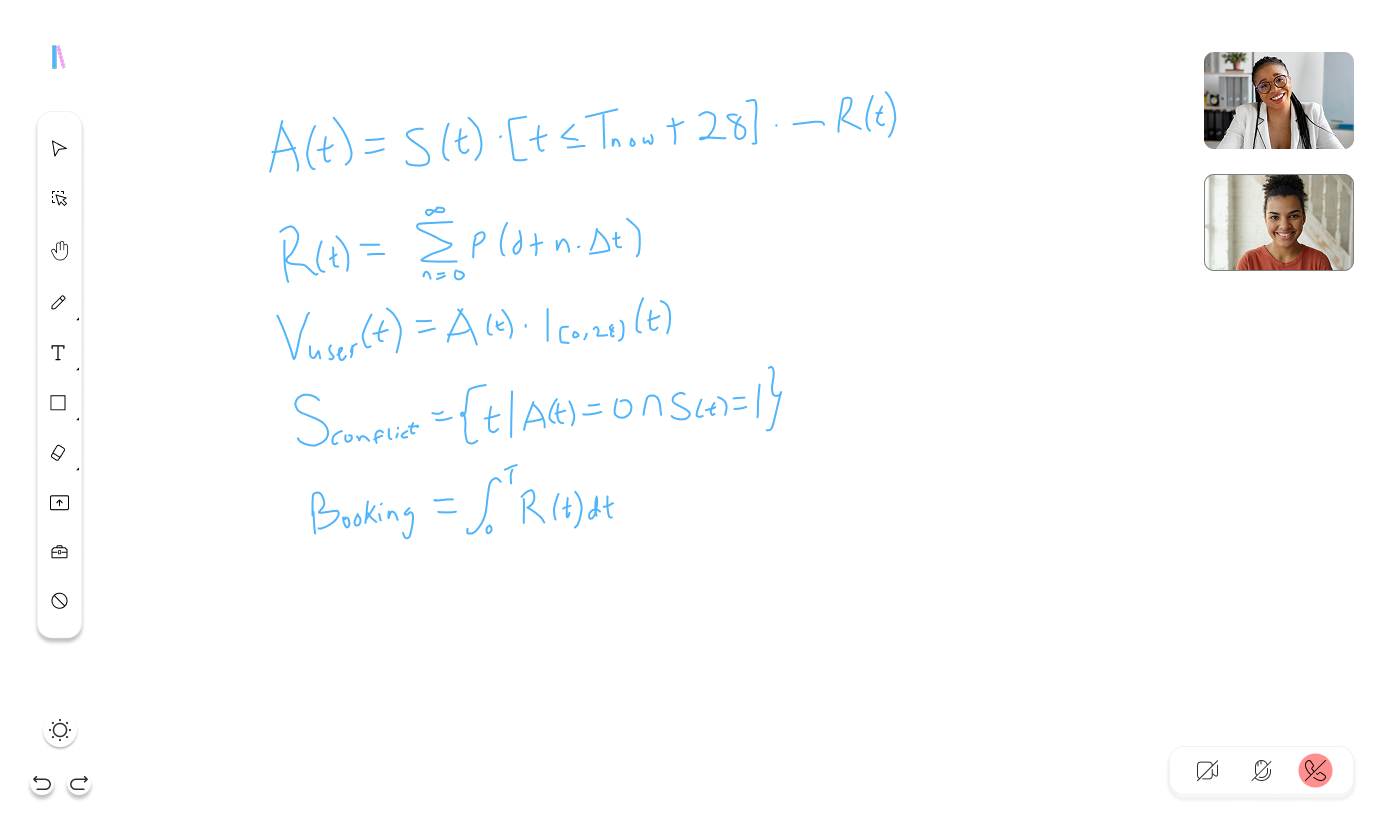 A(t) = S(t) · [t ≤ Tnow + 28] · — R(t)
R(t) = ∞ Σ n=0 P (d+n·Δt)
Vuser(t) = A(t) · 1[0,28) (t)
Sconflict = {t|A(t)=0∩S(t)=1}
Booking = ∫₀ᵀ R(t)dt
T